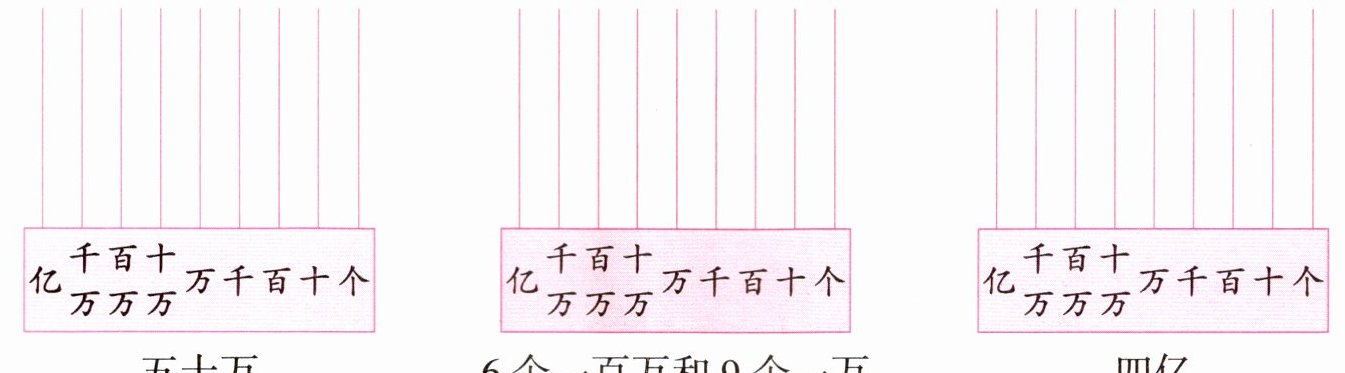 亿 千万 百万 十万 万 千 百 十 个
亿 千万 百万 十万 万 千 百 十 个
亿 千万 百万 十万 万 千 百 十 个
五十万
6个一百万和9个一万
四亿